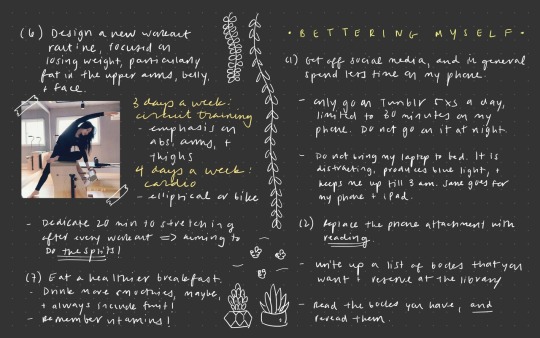 (6) Design a new workout
routine, focused on
losing weight, particularly
fat in the upper arms, belly,
+ face.
3 days a week:
circuit training
- emphasis on
abs, arms, +
thighs
4 days a week:
cardio
- elliptical or bike
- Dedicate 20 min to stretching
after every workout => aiming to
do the splits!
(7) Eat a healthier breakfast.
- Drink more smoothies, maybe,
+ always include fruit!
- Remember vitamins!
• BETTERING MYSELF •
(1) Get off social media, and in general
spend less time on my phone.
- Only go on Tumblr 5xs a day,
limited to 30 minutes on my
phone. Do not go on it at night.
- Do not bring my laptop to bed. It is
distracting, produces blue light, +
keeps me up till 3 am. Same goes for
my phone + iPad.
(2) Replace the phone attachment with
reading.
- Write up a list of books that you
want + reserve at the library
- Read the books you have, and
reread them.